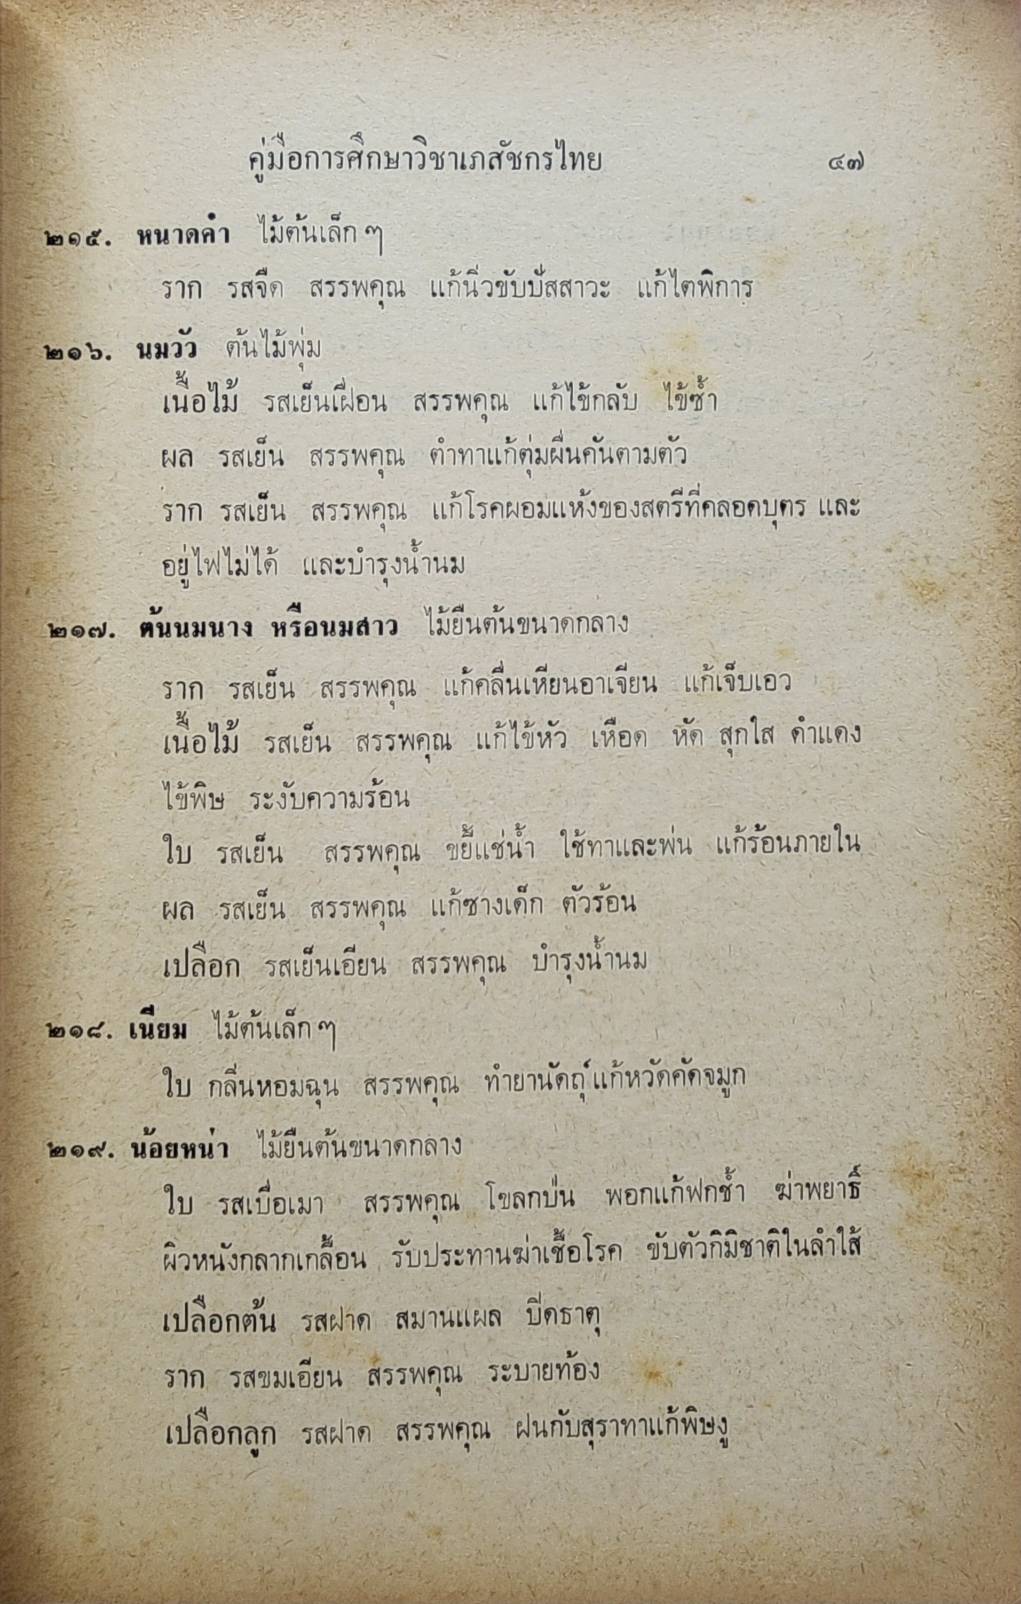 คู่มือการศึกษาวิชาเภสัชกรไทย ๔๗
๒๑๕. หนาดคำ ไม้ต้นเล็ก ๆ
ราก รสจืด สรรพคุณ แก้นิ่วขับปัสสาวะ แก้ไตพิการ
๒๑๖. นมวัว ต้นไม้พุ่ม
เนื้อไม้ รสเย็นเฝื่อน สรรพคุณ แก้ไข้กลับ ไข้ซ้ำ
ผล รสเย็น สรรพคุณ ตำทาแก้ตุ่มผื่นคันตามตัว
ราก รสเย็น สรรพคุณ แก้โรคผอมแห้งของสตรีที่คลอดบุตร และ
อยู่ไฟไม่ได้ และบำรุงน้ำนม
๒๑๗. ต้นนมนาง หรือนมสาว ไม้ยืนต้นขนาดกลาง
ราก รสเย็น สรรพคุณ แก้คลื่นเหียนอาเจียน แก้เจ็บเอว
เนื้อไม้ รสเย็น สรรพคุณ แก้ไข้หัว เหือด หัด สุกใส ดำแดง
ไข้พิษ ระงับความร้อน
ใบ รสเย็น สรรพคุณ ขยี้แช่น้ำ ใช้ทาและพ่น แก้ร้อนภายใน
ผล รสเย็น สรรพคุณ แก้ซางเด็ก ตัวร้อน
เปลือก รสเย็นเอียน สรรพคุณ บำรุงน้ำนม
๒๑๘. เนียม ไม้ต้นเล็ก ๆ
ใบ กลิ่นหอมฉุน สรรพคุณ ทำยานัตถุ์แก้หวัดคัดจมูก
๒๑๙. น้อยหน่า ไม้ยืนต้นขนาดกลาง
ใบ รสเบื่อเมา สรรพคุณ โขลกป่น พอกแก้ฟกช้ำ ฆ่าพยาธิ์
ผิวหนังกลากเกลื้อน รับประทานฆ่าเชื้อโรค ขับตัวกิมิชาติในลำใส้
เปลือกต้น รสฝาด สมานแผล ปิดธาตุ
ราก รสขมเอียน สรรพคุณ ระบายท้อง
เปลือกลูก รสฝาด สรรพคุณ ฝนกับสุราทาแก้พิษงู